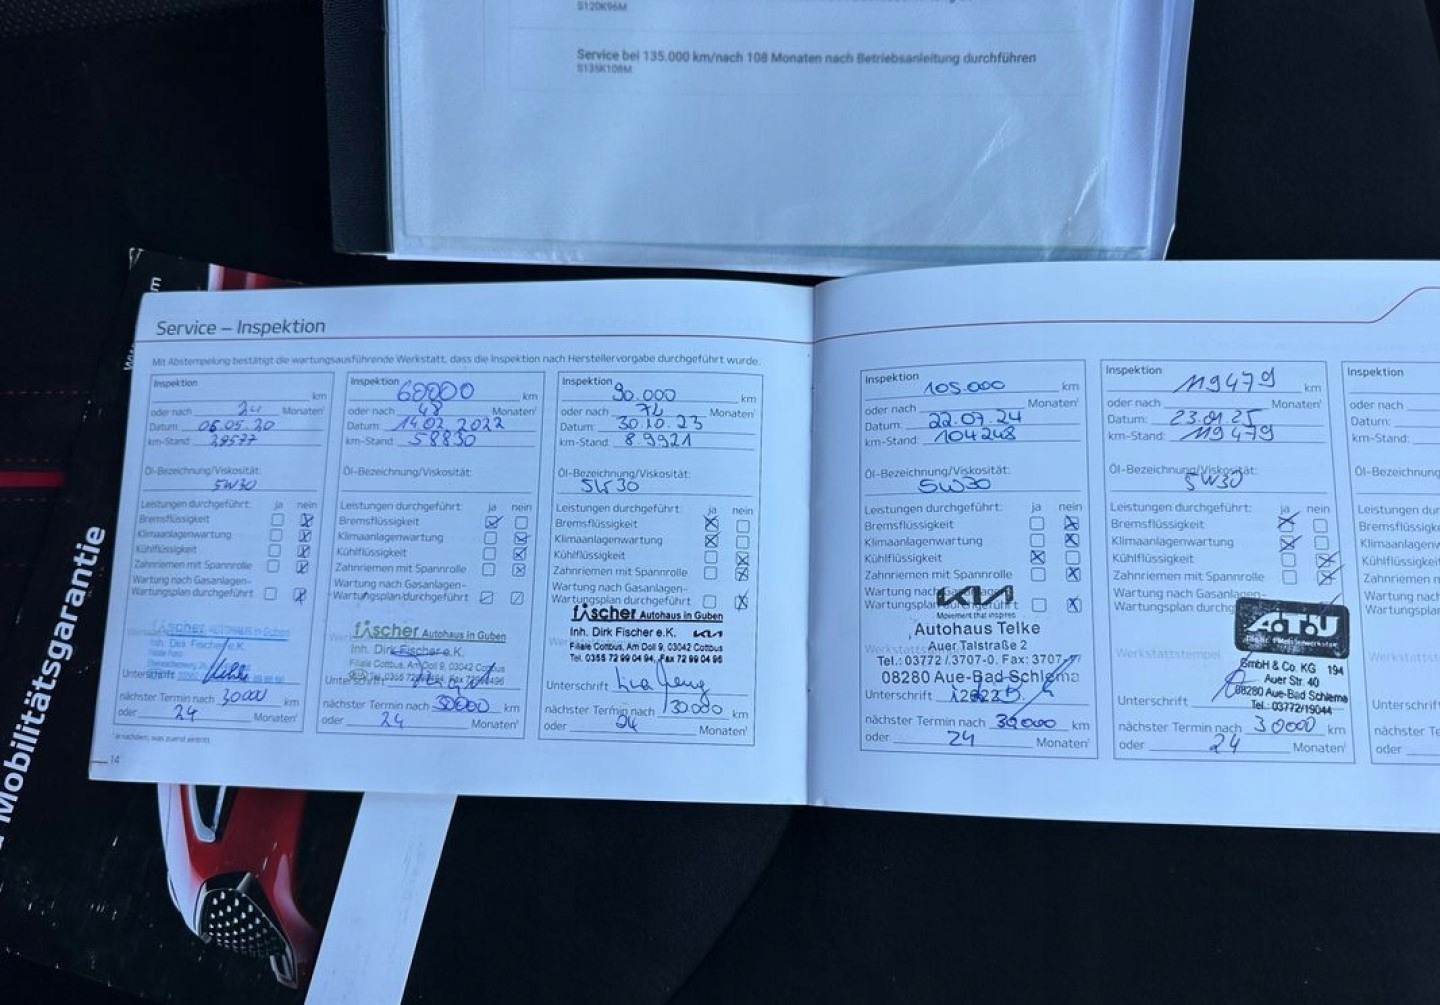 S120K96M
Service bei 135.000 km/nach 108 Monaten nach Betriebsanleitung durchführen
S135K108M
Mobilitätsgarantie
Service – Inspektion
Mit Abstempelung bestätigt die wartungsausführende Werkstatt, dass die Inspektion nach Herstellervorgabe durchgeführt wurde.
Inspektion
km
oder nach 24 Monaten¹
Datum: 06.05.20
km-Stand: 29577
Öl-Bezeichnung/Viskosität:
5W30
Leistungen durchgeführt: ja nein
Bremsflüssigkeit
Klimaanlagenwartung
Kühlflüssigkeit
Zahnriemen mit Spannrolle
Wartung nach Gasanlagen-
Wartungsplan durchgeführt
fischer AUTOHAUS in Guben
Inh. Dirk Fischer e.K.
Unterschrift
nächster Termin nach 30000 km
oder 24 Monaten¹
¹ je nachdem, was zuerst eintritt
14
Inspektion 60000 km
oder nach 48 Monaten¹
Datum: 14.02.2022
km-Stand: 58830
Öl-Bezeichnung/Viskosität:
Leistungen durchgeführt: ja nein
Bremsflüssigkeit
Klimaanlagenwartung
Kühlflüssigkeit
Zahnriemen mit Spannrolle
Wartung nach Gasanlagen-
Wartungsplan durchgeführt
fischer Autohaus in Guben
Inh. Dirk Fischer e.K.
Filiale Cottbus, Am Doll 9, 03042 Cottbus
Unterschrift
nächster Termin nach km
oder 24 Monaten¹
Inspektion 90.000 km
oder nach 72 Monaten¹
Datum: 30.10.23
km-Stand: 8.9921
Öl-Bezeichnung/Viskosität:
5W30
Leistungen durchgeführt: ja nein
Bremsflüssigkeit
Klimaanlagenwartung
Kühlflüssigkeit
Zahnriemen mit Spannrolle
Wartung nach Gasanlagen-
Wartungsplan durchgeführt
fischer Autohaus in Guben
Inh. Dirk Fischer e.K. KIA
Filiale Cottbus, Am Doll 9, 03042 Cottbus
Tel. 0355 72 99 04 94, Fax 72 99 04 96
Unterschrift
nächster Termin nach 30000 km
oder 24 Monaten¹
Inspektion 105.000 km
oder nach Monaten¹
Datum: 22.07.24
km-Stand: 104248
Öl-Bezeichnung/Viskosität:
5W30
Leistungen durchgeführt: ja nein
Bremsflüssigkeit
Klimaanlagenwartung
Kühlflüssigkeit
Zahnriemen mit Spannrolle
Wartung nach Gasanlagen-
Wartungsplan durchgeführt
KIA
Movement that inspires
Autohaus Telke
Auer Talstraße 2
Tel.: 03772 / 3707-0. Fax: 3707
08280 Aue-Bad Schlema
Unterschrift
nächster Termin nach 30000 km
oder 24 Monaten¹
Inspektion 119479 km
oder nach Monaten¹
Datum: 23.01.25
km-Stand: 119479
Öl-Bezeichnung/Viskosität:
5W30
Leistungen durchgeführt: ja nein
Bremsflüssigkeit
Klimaanlagenwartung
Kühlflüssigkeit
Zahnriemen mit Spannrolle
Wartung nach Gasanlagen-
Wartungsplan durchg
Werkstattstempel
A.T.U
GmbH & Co. KG 194
Auer Str. 40
08280 Aue-Bad Schlema
Tel.: 03772/19044
Unterschrift
nächster Termin nach 30000 km
oder 24 Monaten¹
Inspektion
oder nach
Datum:
km-Stand:
Öl-Bezeichnung
Leistungen dur
Bremsflüssigk
Klimaanlagenw
Kühlflüssigkei
Zahnriemen mi
Wartung nach
Wartungsplan
Werkstattst
Unterschrift
nächster Te
oder